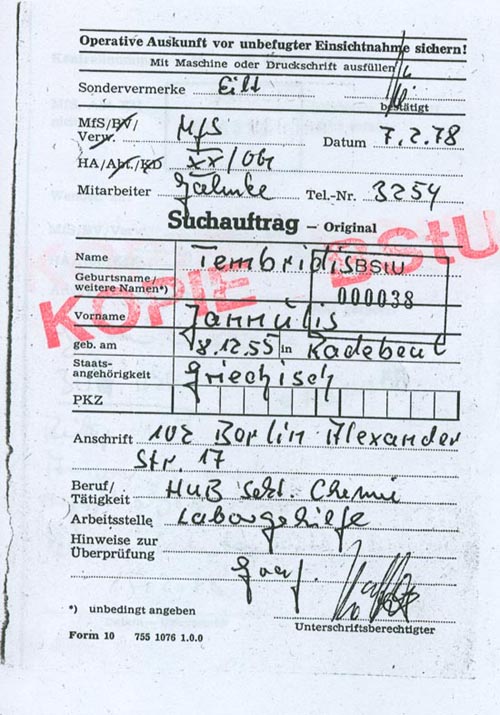 Operative Auskunft vor unbefugter Einsichtnahme sichern!
Mit Maschine oder Druckschrift ausfüllen
Sondervermerke Eilt
bestätigt
MfS/BV/
Verw. MfS Datum 7.2.78
HA/Abt./KD XX/
Mitarbeiter Tel.-Nr. 3254
Suchauftrag – Original
KOPIE BStU
Name Tembridis
BStU
000038
Geburtsname/
weitere Namen*)
Vorname Jannulis
geb. am 18.12.55 in Radebeul
Staats-
angehörigkeit Griechisch
PKZ
Anschrift 102 Berlin Alexander
Str. 17
Beruf/
Tätigkeit HUB Sekt. Chemie
Arbeitsstelle Laborgehilfe
Hinweise zur
Überprüfung
*) unbedingt angeben
Unterschriftsberechtigter
Form 10 755 1076 1.0.0